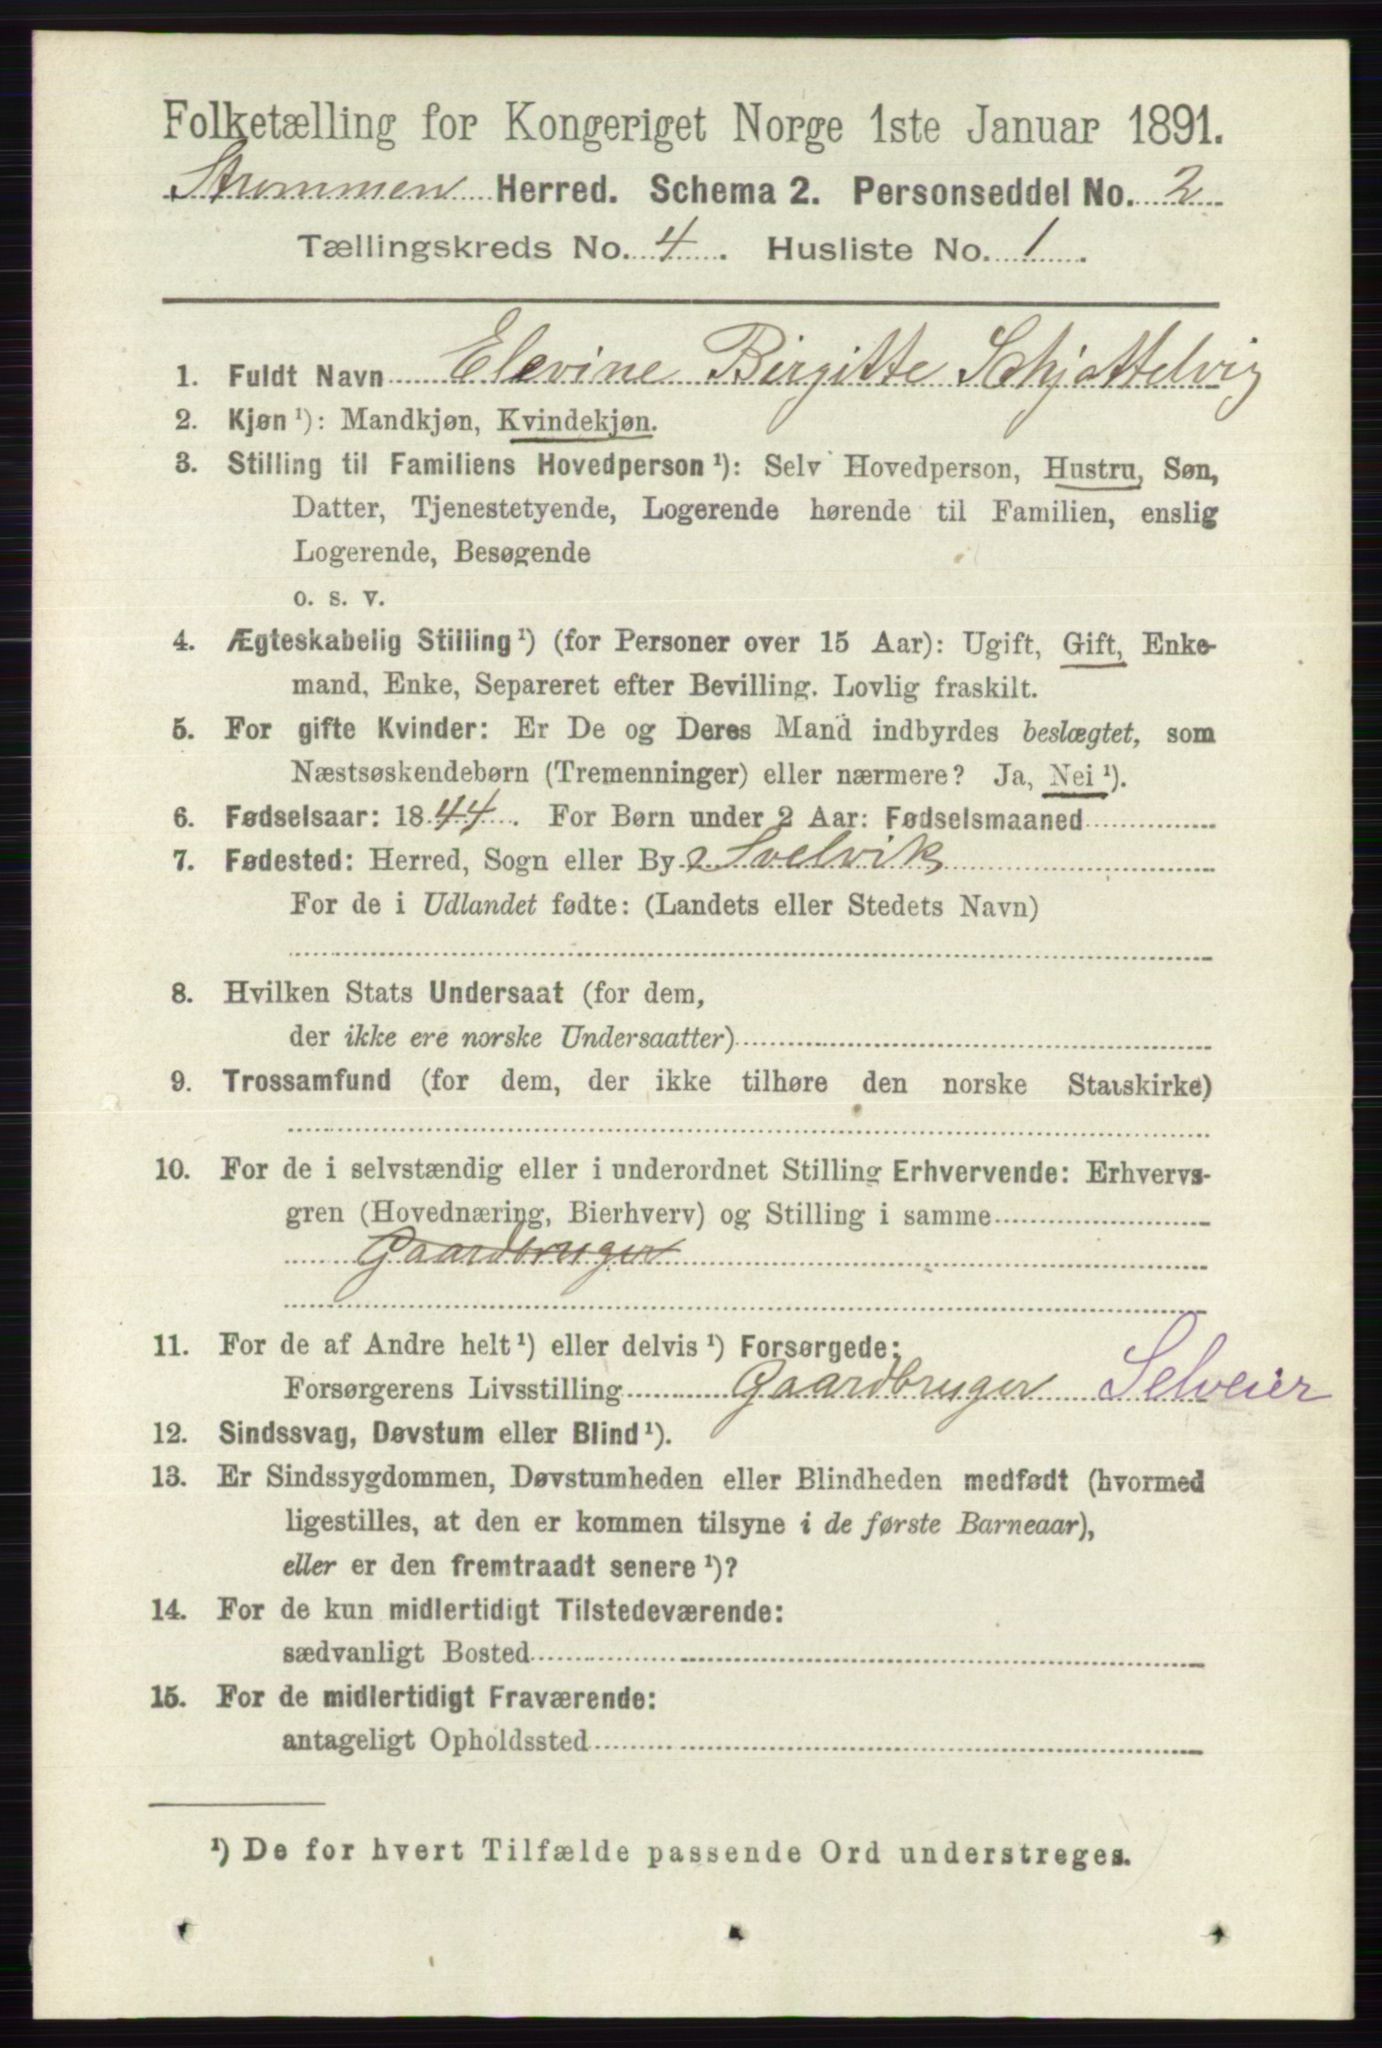 Folketælling for Kongeriget Norge 1ste Januar 1891.
Strømmen Herred. Schema 2. Personseddel No. 2
Tællingskreds No. 4. Husliste No. 1.
1. Fuldt Navn Elevine Birgitte Schjøttelvig
2. Kjøn ¹): Mandkjøn, Kvindekjøn.
3. Stilling til Familiens Hovedperson ¹): Selv Hovedperson, Hustru, Søn,
Datter, Tjenestetyende, Logerende hørende til Familien, enslig
Logerende, Besøgende
o. s. v.
4. Ægteskabelig Stilling ¹) (for Personer over 15 Aar): Ugift, Gift, Enke-
mand, Enke, Separeret efter Bevilling. Lovlig fraskilt.
5. For gifte Kvinder: Er De og Deres Mand indbyrdes beslægtet, som
Næstsøskendebørn (Tremenninger) eller nærmere? Ja, Nei ¹).
6. Fødselsaar: 1844. For Børn under 2 Aar: Fødselsmaaned
7. Fødested: Herred, Sogn eller By Svelvik
For de i Udlandet fødte: (Landets eller Stedets Navn)
8. Hvilken Stats Undersaat (for dem,
der ikke ere norske Undersaatter)
9. Trossamfund (for dem, der ikke tilhøre den norske Statskirke)
10. For de i selvstændig eller i underordnet Stilling Erhvervende: Erhvervs-
gren (Hovednæring, Bierhverv) og Stilling i samme
Gaardbruger
11. For de af Andre helt ¹) eller delvis ¹) Forsørgede:
Forsørgerens Livsstilling Gaardbruger Selveier
12. Sindssvag, Døvstum eller Blind ¹).
13. Er Sindssygdommen, Døvstumheden eller Blindheden medfødt (hvormed
ligestilles, at den er kommen tilsyne i de første Barneaar),
eller er den fremtraadt senere ¹)?
14. For de kun midlertidigt Tilstedeværende:
sædvanligt Bosted
15. For de midlertidigt Fraværende:
antageligt Opholdssted
¹) De for hvert Tilfælde passende Ord understreges.